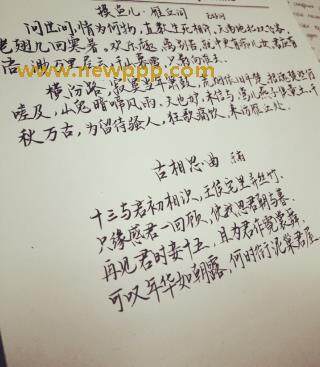 摸鱼儿·雁丘词
问世间,情为何物,直教生死相许,天南地北双飞客,
老翅几回寒暑。欢乐趣,离别苦,就中更有
www.newppp.com
横汾路,寂寞当年箫鼓,荒烟依旧平楚。招魂楚些何
嗟及,山鬼暗啼风雨,天也妒,未信与,莺儿燕子俱黄土,千
秋万古,为留待骚人,狂歌痛饮,来访雁丘处
古相思曲
十三与君初相识,王侯宅里弄丝竹,
只缘感君一回顾,使我思君朝与暮,
再见君时妾十五,且为君作霓裳舞,
可叹年华如朝露,何时衔泥巢君屋